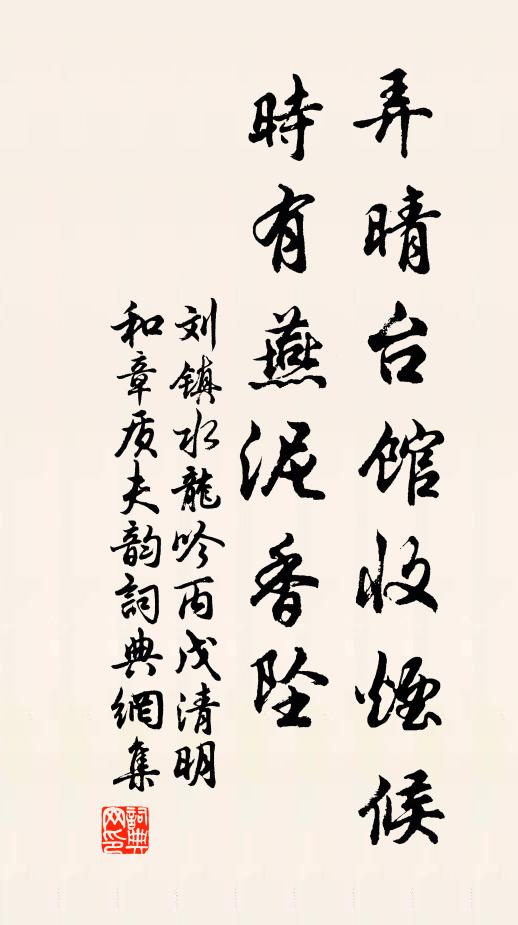 弄晴台馆收煙候
時有燕泥香坠
刘镇水龍吟丙戌清明
和章质夫韵詞典網集
詞典网印